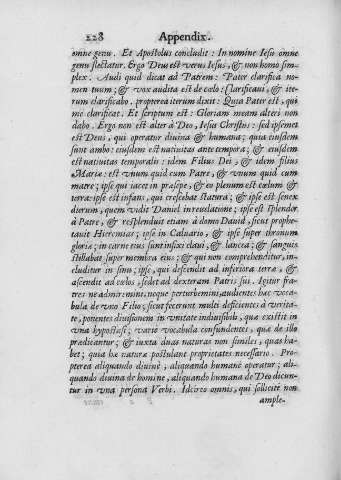 228 Appendix.
omne genu. Et Apostolus concludit: In nomine Iesu omne
genu flectatur. Ergo Deus est verus Iesus, & non homo sim-
plex. Audi quid dicat ad Patrem: Pater clarifica no-
men tuum; & vox audita est de cœlo: Clarificaui, & ite-
rum clarificabo. propterea iterum dixit: Quia Pater est, qui
me clarificat. Et scriptum est: Gloriam meam alteri non
dabo. Ergo non est alter à Deo, Iesus Christus: sed ipsemet
est Deus, qui operatur diuina & humana; quia eiusdem
sunt ambo: eiusdem est natiuitas ante tempora; & eiusdem
est natiuitas temporalis: idem Filius Dei, & idem filius
Mariæ: est vnum quid cum Patre, & vnum quid cum
matre; ipse qui iacet in præsepe, & eo plenum est cœlum &
terra: ipse est infans, qui crescebat statura; & ipse est senex
dierum, quem vidit Daniel in reuelatione; ipse est splendor
à Patre, & resplenduit etiam à domo Dauid, sicut prophe-
tauit Hieremias; ipse in Caluario, & ipse super thronum
gloriæ; in carne eius sunt infixi claui, & lancea; & sanguis
stillabat super membra eius; & qui non comprehenditur, in-
cluditur in sinu; ipse, qui descendit ad inferiora terræ, &
ascendit ad cœlos, sedet ad dexteram Patris sui. Igitur fra-
tres ne admiremini, neque perturbemini, audientes hæc voca-
bula de vno Filio; sicut fecerunt multi deficientes à verita-
te, ponentes diuisionem in vnitate indiuisibili, quæ existit in
vna hypostasi; vario vocabula confundentes, quæ de illo
prædicantur; & iuxta duas naturas non similes, quas ha-
bet; quia hæ naturæ postulant proprietates necessario. Pro-
pterea aliquando diuinè, aliquando humanè operatur; ali-
quando diuina de homine, aliquando humana de Deo dicun-
tur in vna persona Verbi. Idcirco omnis, qui sollicitè non
ample-